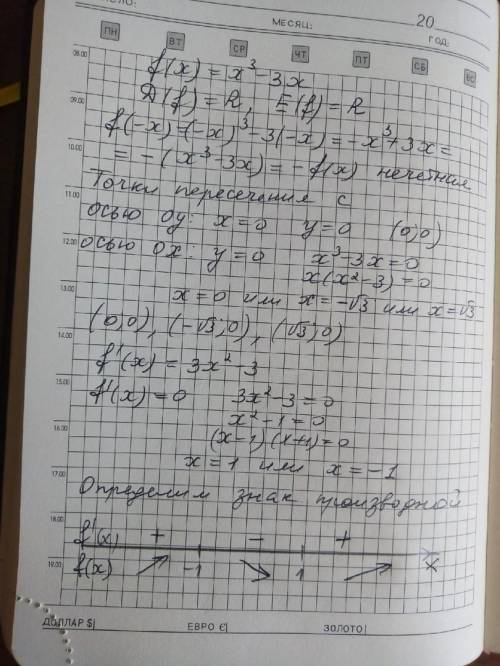 ЧИСЛО:
МЕСЯЦ:
20
ГОД:
ПН ВТ СР ЧТ ПТ СБ ВС
08.00
f(x) = x³ - 3x
09.00
D(f) = R, E(f) = R
f(-x) = (-x)³ - 3(-x) = -x³ + 3x =
10.00
= -(x³ - 3x) = -f(x) нечетная
Точки пересечения с
11.00
осью Oy: x = 0 y = 0 (0;0)
12.00
осью Ox: y = 0 x³ - 3x = 0
x(x² - 3) = 0
13.00
x = 0 или x = -√3 или x = √3
(0;0), (-√3;0), (√3;0)
14.00
f'(x) = 3x² - 3
15.00
f'(x) = 0 3x² - 3 = 0
x² - 1 = 0
16.00
(x-1)(x+1) = 0
x = 1 или x = -1
17.00
Определим знак производной
18.00
f'(x) + - +
19.00
f(x) ↗ -1 ↘ 1 ↗ x
ДОЛЛАР $| ЕВРО €| ЗОЛОТО|